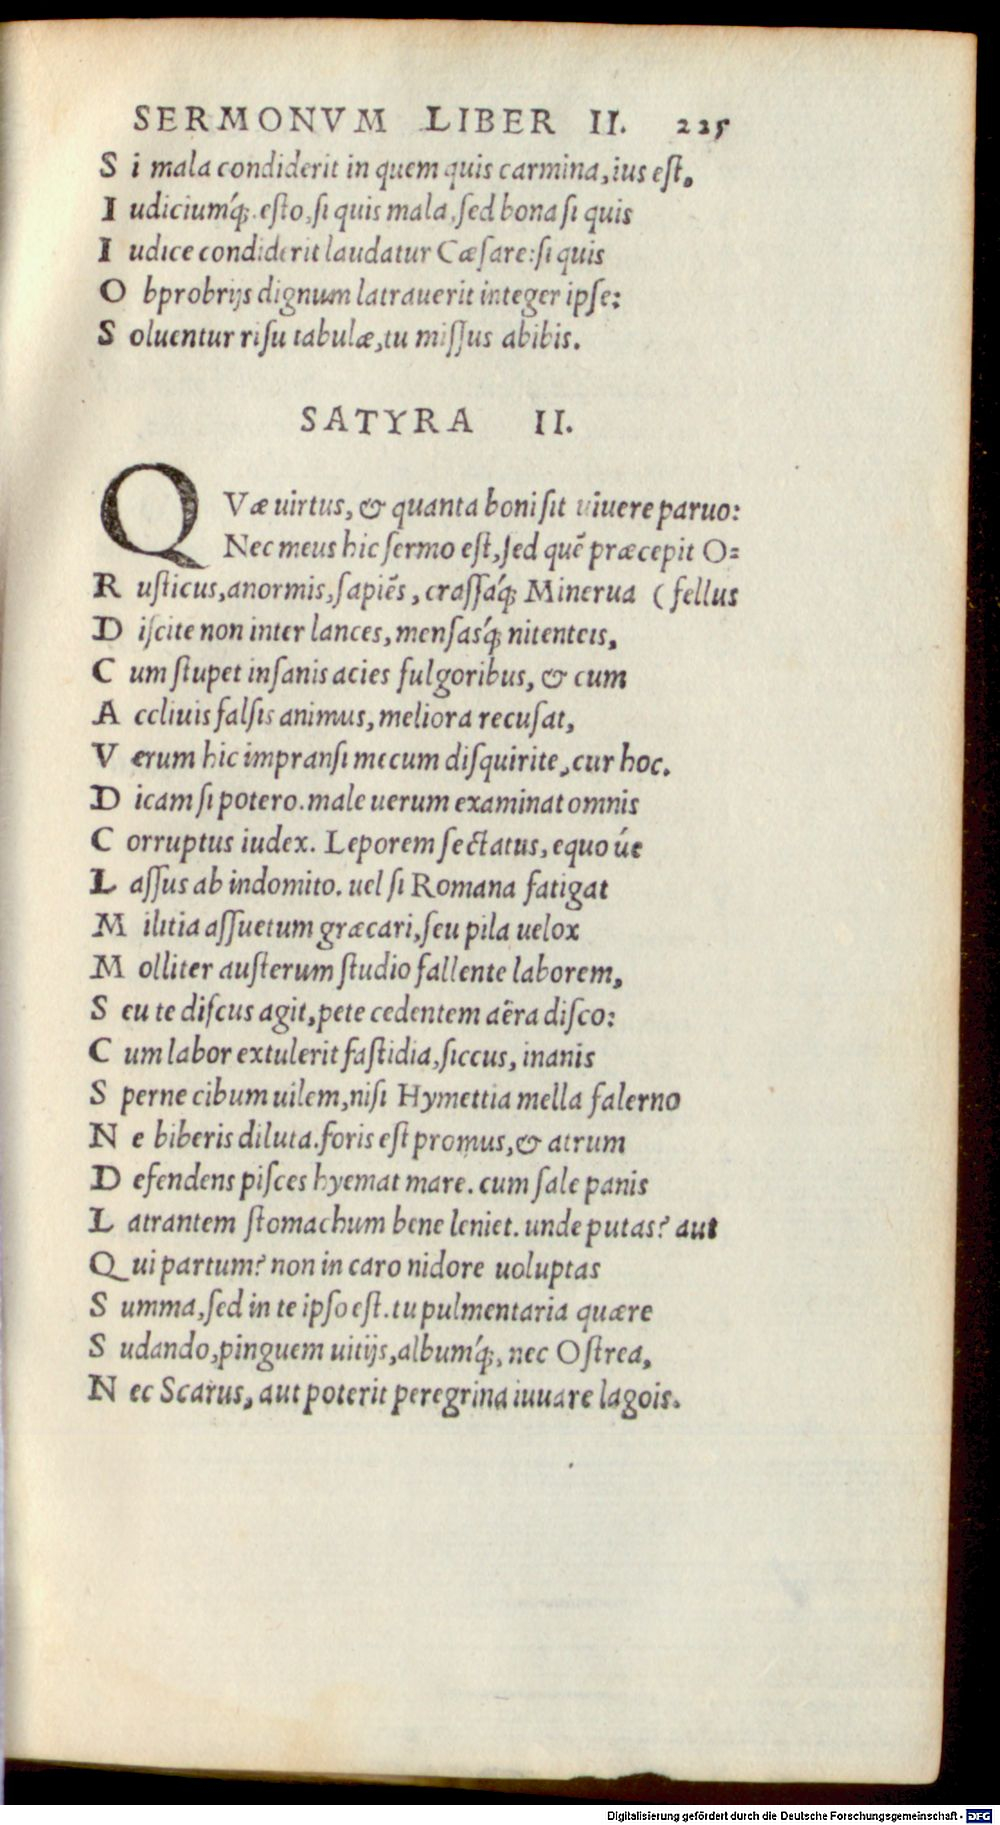 SERMONVM LIBER II. 225
S i mala condiderit in quem quis carmina, ius est,
I udiciumq́;. esto, si quis mala, sed bona si quis
I udice condiderit laudatur Cæsare: si quis
O bprobrijs dignum latrauerit integer ipse:
S oluentur risu tabulæ, tu missus abibis.
SATYRA II.
QVæ uirtus, & quanta boni sit uiuere paruo:
Nec meus hic sermo est, sed quẽ præcepit O=
R usticus, anormis, sapiẽs, crassáq; Minerua (fellus
D iscite non inter lances, mensasq́; nitenteis,
C um stupet insanis acies fulgoribus, & cum
A ccliuis falsis animus, meliora recusat,
V erum hic impransi mecum disquirite, cur hoc.
D icam si potero. male uerum examinat omnis
C orruptus iudex. Leporem sectatus, equo úe
L assus ab indomito. uel si Romana fatigat
M ilitia assuetum græcari, seu pila uelox
M olliter austerum studio fallente laborem,
S eu te discus agit, pete cedentem aëra disco:
C um labor extulerit fastidia, siccus, inanis
S perne cibum uilem, nisi Hymettia mella falerno
N e biberis diluta. foris est promus, & atrum
D efendens pisces hyemat mare. cum sale panis
L atrantem stomachum bene leniet. unde putas? aut
Q ui partum? non in caro nidore uoluptas
S umma, sed in te ipso est. tu pulmentaria quære
S udando, pinguem uitijs, albumq́;, nec Ostrea,
N ec Scarus, aut poterit peregrina iuuare lagois.
Digitalisierung gefördert durch die Deutsche Forschungsgemeinschaft - DFG